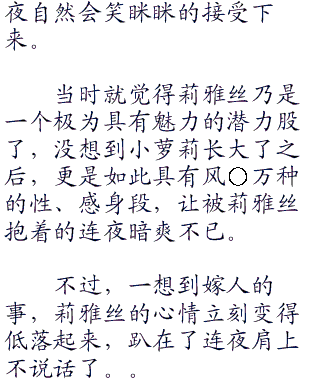 夜自然会笑眯眯的接受下
来。
当时就觉得莉雅丝乃是
一个极为具有魅力的潜力股
了，没想到小萝莉长大了之
后，更是如此具有风○万种
的性、感身段，让被莉雅丝
抱着的连夜暗爽不已。
不过，一想到嫁人的
事，莉雅丝的心情立刻变得
低落起来，趴在了连夜肩上
不说话了。。